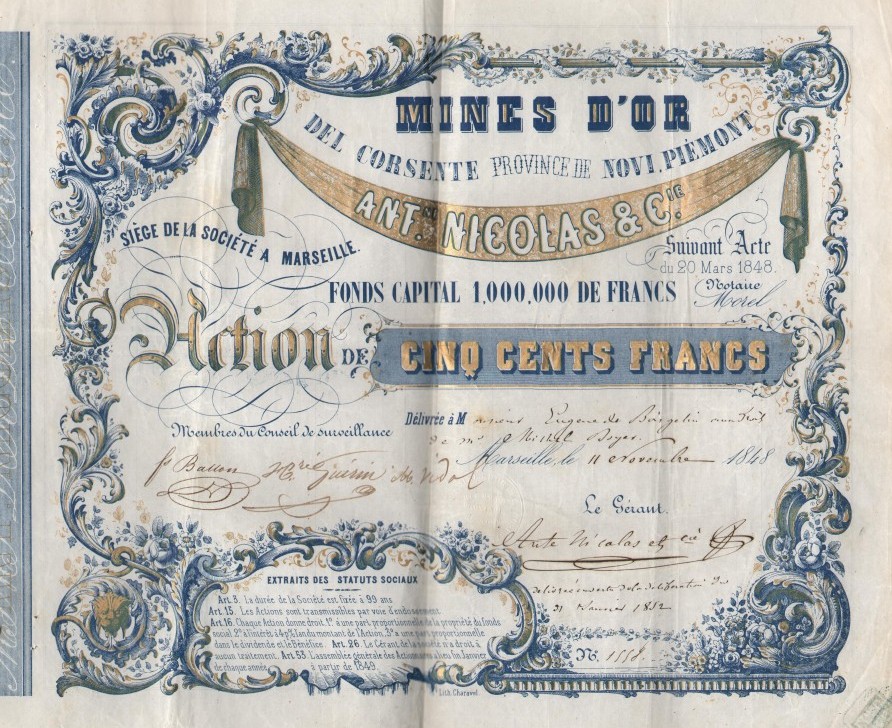 MINES D'OR
DEL CORSENTE PROVINCE DE NOVI, PIÉMONT
ANT.NE NICOLAS & C.IE
SIÈGE DE LA SOCIÉTÉ A MARSEILLE.
Suivant Acte
du 20 Mars 1848.
Notaire
Morel
FONDS CAPITAL 1,000,000 DE FRANCS
Action DE CINQ CENTS FRANCS
Délivrée à Monsieur Eugene de
de Mr Michel
Membres du Conseil de surveillance
Marseille, le 11 Novembre 1848
Guérin
Le Gérant.
Ante Nicolas et cie
EXTRAITS DES STATUTS SOCIAUX
Art. 3. La durée de la Société est fixée à 99 ans
Art. 15. Les Actions sont transmissibles par voie d'endossement.
Art. 16. Chaque Action donne droit 1.° à une part proportionnelle de la propriété du fonds
social, 2.° à l'intérêt à 4 p% l'an du montant de l'Action, 3.° à une part proportionnelle
dans le dividende et le bénéfice. Art. 26. Le Gérant, de la société n'a droit à
aucun traitement. Art. 53. L'assemblée générale des Actionnaires a lieu fin Janvier
de chaque année à partir de 1849.
de la délibération du
31 Janvier 1852
N.° 1558.
Lith. Charavel